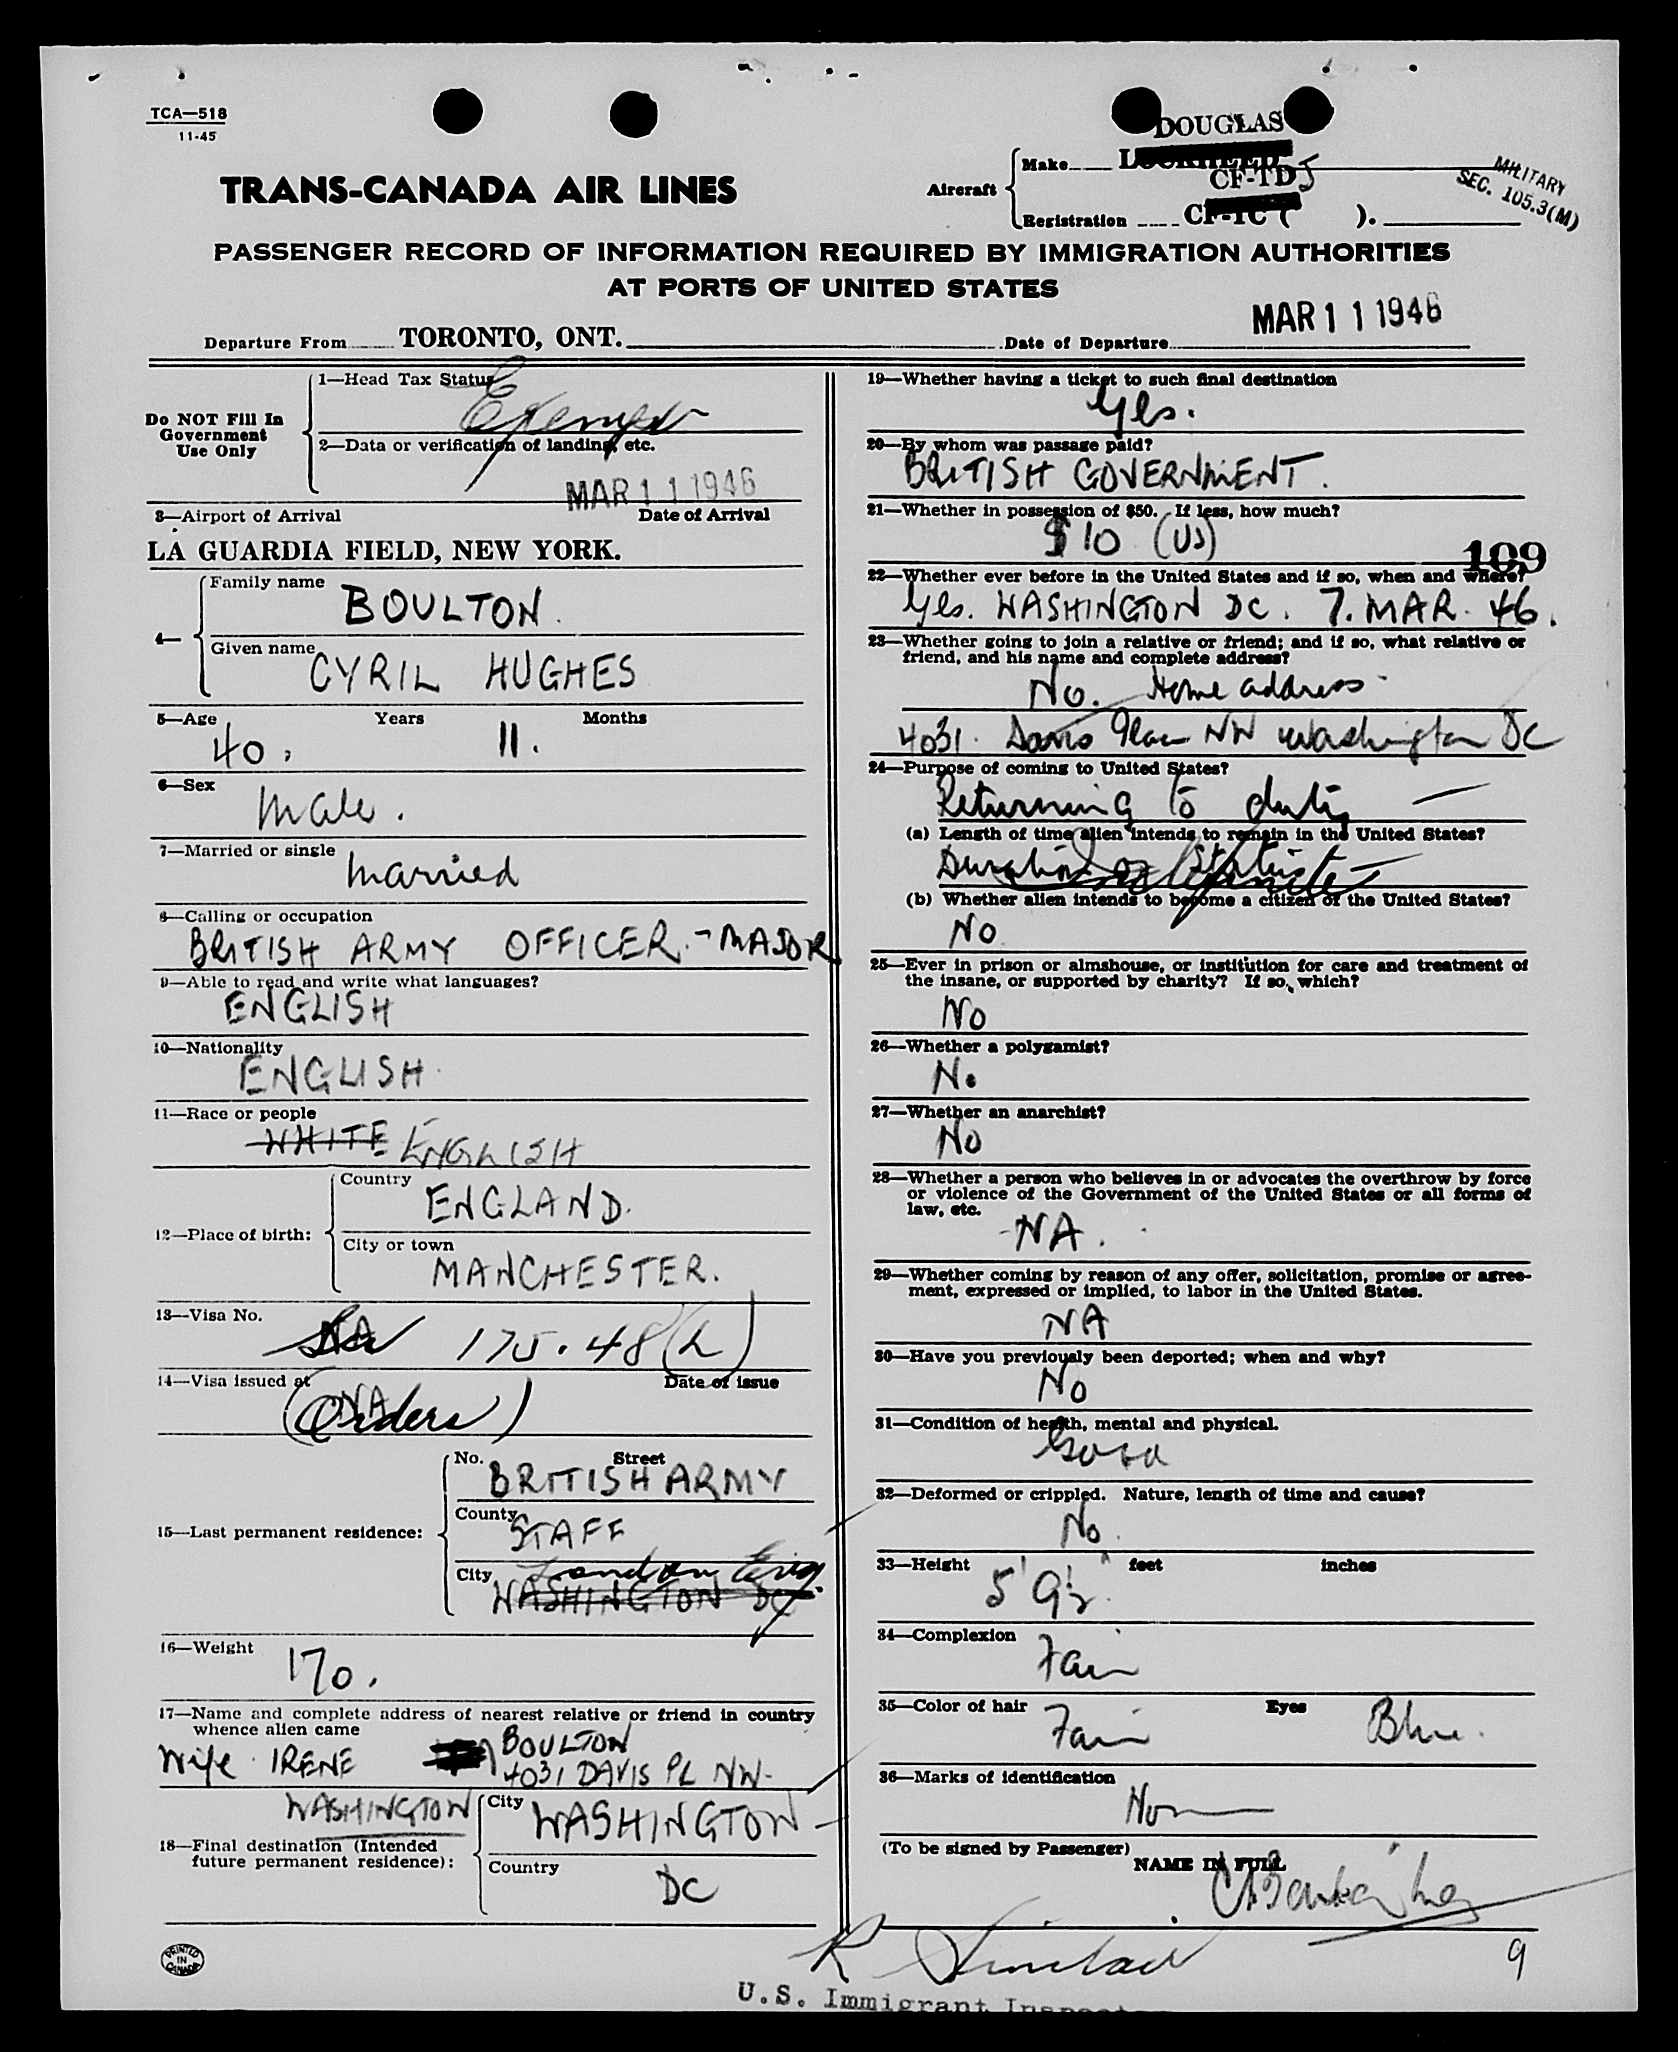 TCA—518
11-45
DOUGLAS
Make LOCKHEED
CF-TDJ
MILITARY
SEC. 105.3(M)
TRANS-CANADA AIR LINES
Aircraft
Registration CF-TC ( ).
PASSENGER RECORD OF INFORMATION REQUIRED BY IMMIGRATION AUTHORITIES
AT PORTS OF UNITED STATES
MAR 11 1946
Departure From TORONTO, ONT. Date of Departure
Do NOT Fill In
Government
Use Only
1—Head Tax Status
Exempt
2—Data or verification of landing, etc.
MAR 11 1946
3—Airport of Arrival Date of Arrival
LA GUARDIA FIELD, NEW YORK.
4—
Family name
BOULTON.
Given name
CYRIL HUGHES
5—Age Years Months
40, 11.
6—Sex
Male.
7—Married or single
Married
8—Calling or occupation
BRITISH ARMY OFFICER.-MAJOR
9—Able to read and write what languages?
ENGLISH
10—Nationality
ENGLISH.
11—Race or people
WHITE ENGLISH
12—Place of birth:
Country
ENGLAND.
City or town
MANCHESTER.
13—Visa No.
NA 175.48(L)
14—Visa issued at Date of issue
NA
(Orders)
15—Last permanent residence:
No. Street
BRITISH ARMY
County
STAFF
City
London Eng.
WASHINGTON DC
16—Weight
170.
17—Name and complete address of nearest relative or friend in country
whence alien came
Wife. IRENE BOULTON
4031 DAVIS PL NW-
WASHINGTON
18—Final destination (Intended
future permanent residence):
City
WASHINGTON
Country
DC
PRINTED
IN
CANADA
19—Whether having a ticket to such final destination
Yes.
20—By whom was passage paid?
BRITISH GOVERNMENT.
21—Whether in possession of $50. If less, how much?
$10 (US)
109
22—Whether ever before in the United States and if so, when and where?
Yes. WASHINGTON DC. 7. MAR. 46.
23—Whether going to join a relative or friend; and if so, what relative or
friend, and his name and complete address?
No. Home address.
4031. Davis Place NW Washington DC
24—Purpose of coming to United States?
Returning to duty
(a) Length of time alien intends to remain in the United States?
Duration of Status
Indefinite
(b) Whether alien intends to become a citizen of the United States?
No
25—Ever in prison or almshouse, or institution for care and treatment of
the insane, or supported by charity? If so, which?
No
26—Whether a polygamist?
No
27—Whether an anarchist?
No
28—Whether a person who believes in or advocates the overthrow by force
or violence of the Government of the United States or all forms of
law, etc.
-NA.
29—Whether coming by reason of any offer, solicitation, promise or agree-
ment, expressed or implied, to labor in the United States.
NA
30—Have you previously been deported; when and why?
No
31—Condition of health, mental and physical.
Good
32—Deformed or crippled. Nature, length of time and cause?
No.
33—Height feet inches
5' 9½"
34—Complexion
Fair
35—Color of hair Eyes
Fair Blue.
36—Marks of identification
None
(To be signed by Passenger)
NAME IN FULL
R Sinclair
9
U.S. Immigrant Inspector